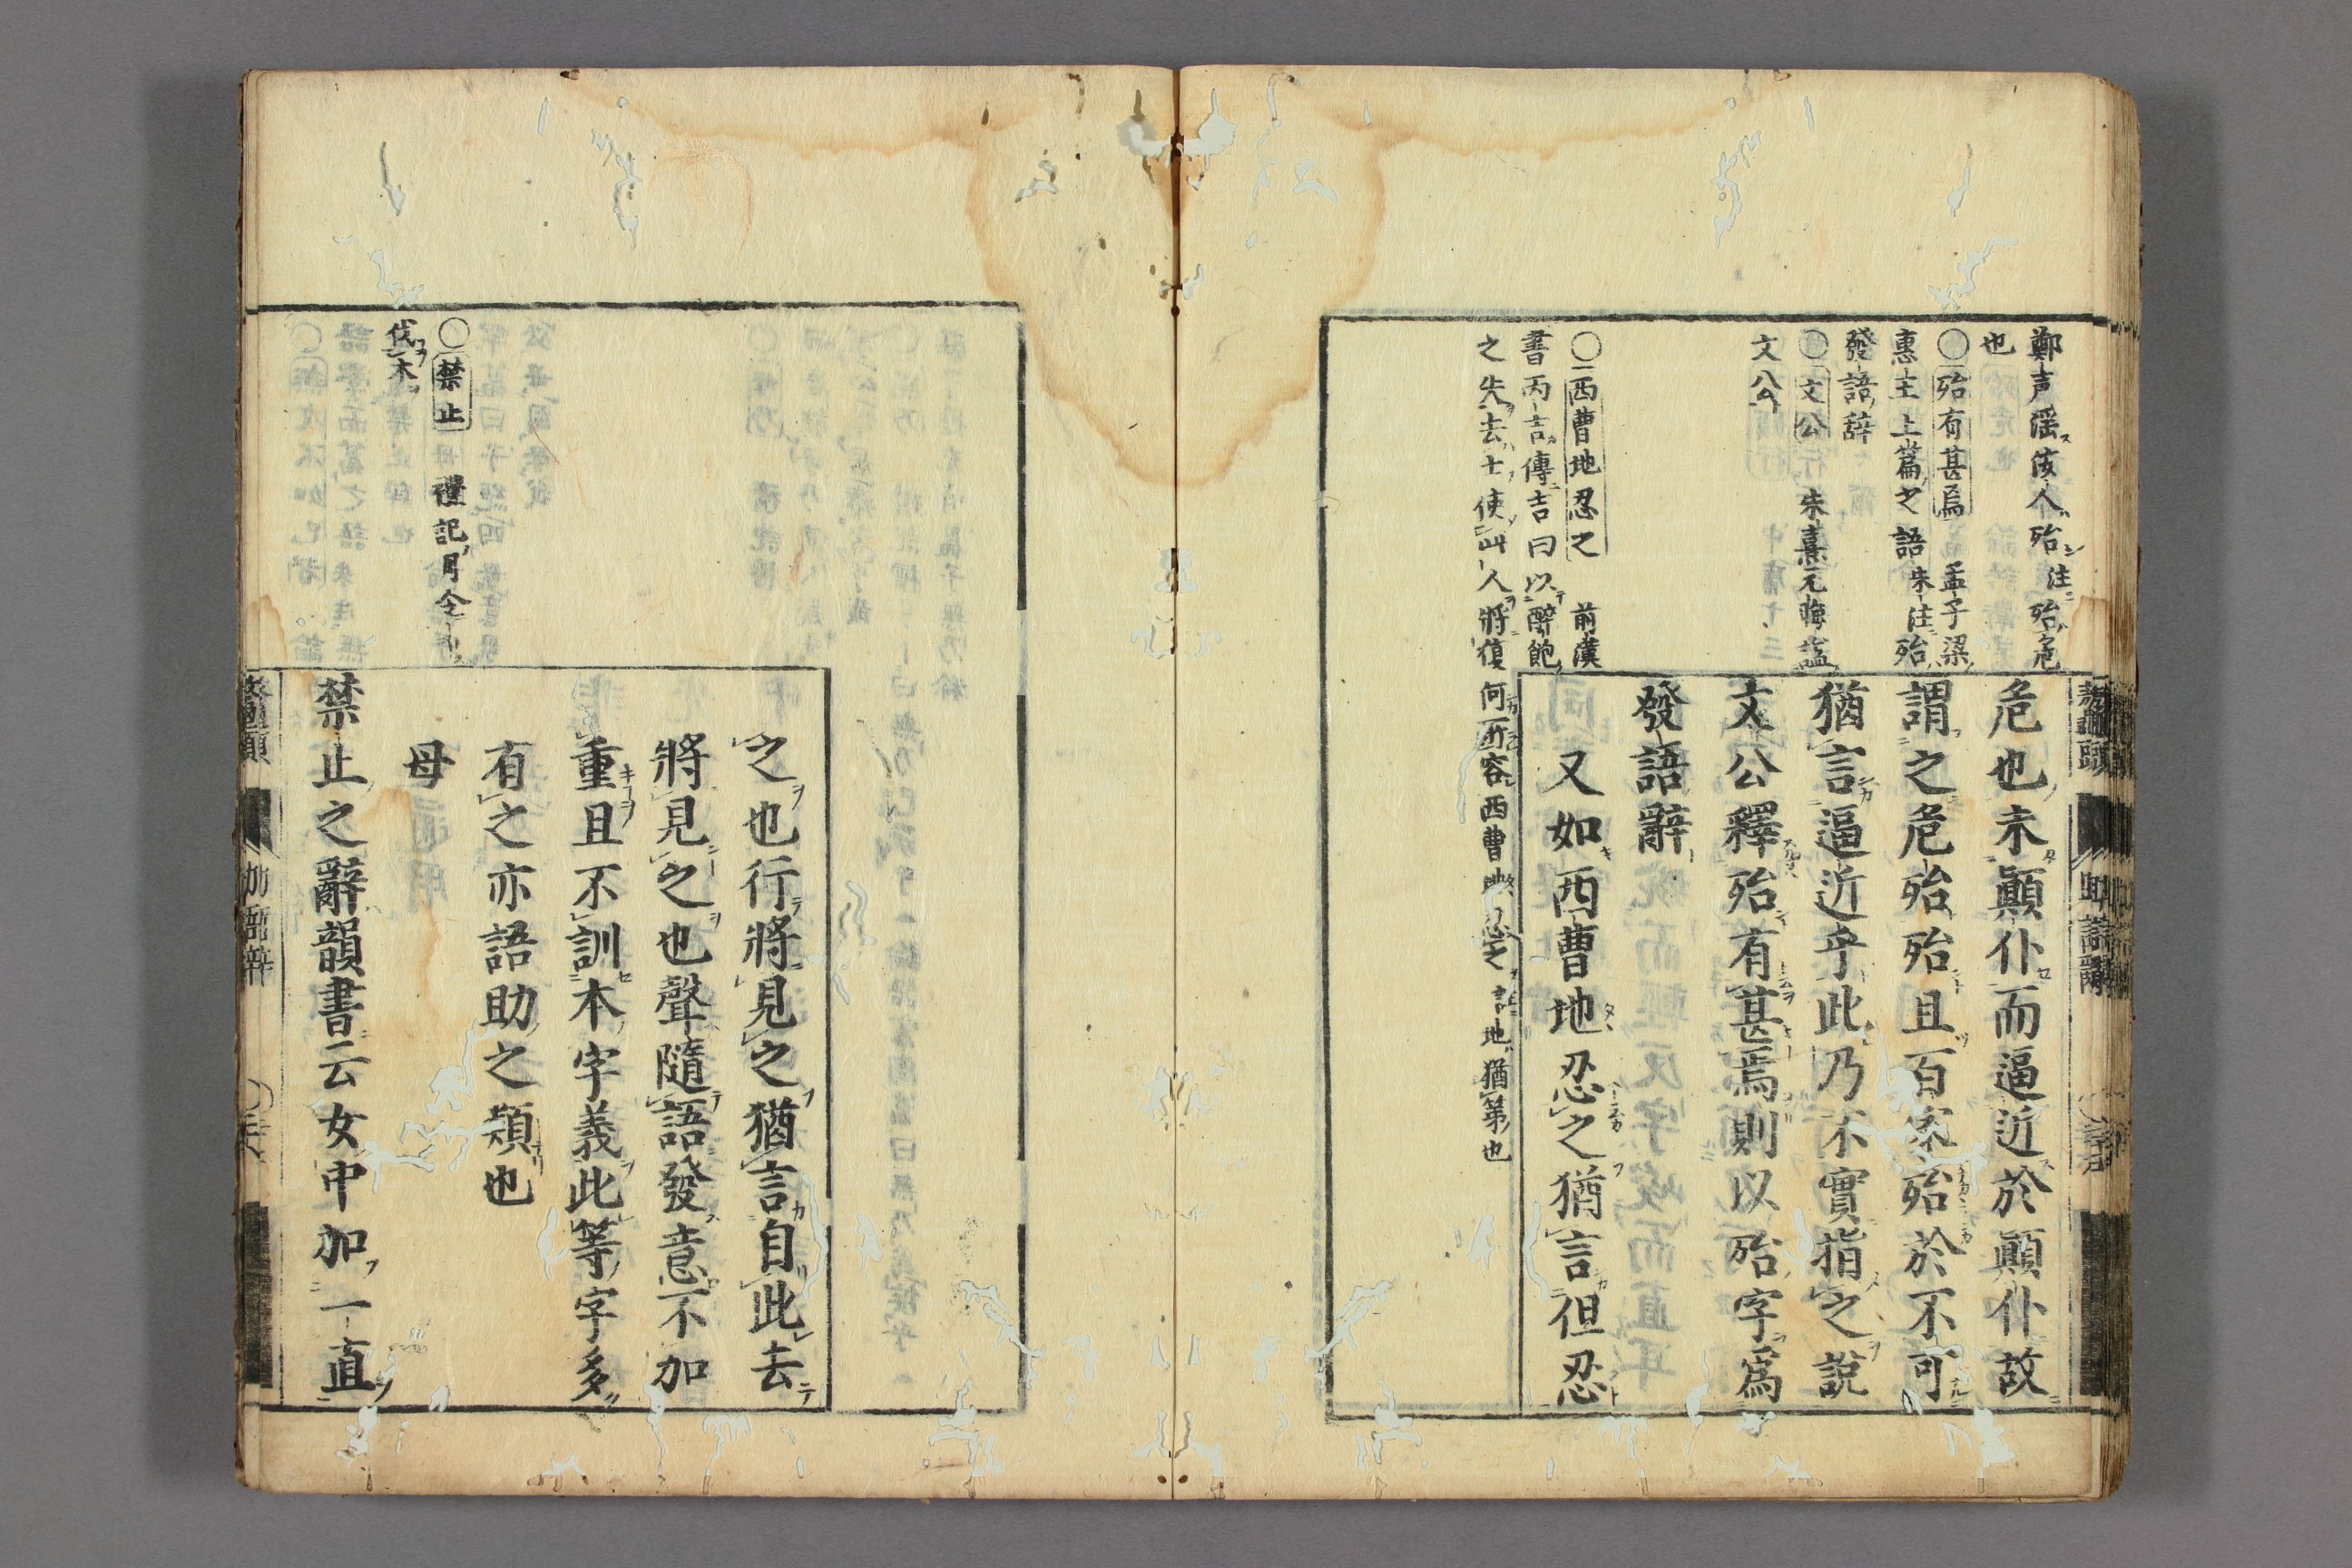 鄭声淫佞人殆注殆危
也
〇殆有甚焉 孟子梁
惠王上篇之語朱注殆
發語辞
〇文公 朱熹元晦謚
文公
〇西曹地忍之 前漢
書丙吉傳吉曰以醉飽
之失去士使此人將復何所容西曹地忍之註地猶第也
危也未顚仆而逼近於顚仆故
謂之危殆殆且百家殆於不可
猶言逼近乎此乃不實指之說
文公釋殆有甚焉則以殆字爲
發語辭
又如西曹地忍之猶言但忍
鼇頭 助語辭
之也行將見之猶言自此去
將見之也聲隨語發意不加
重且不訓本字義此等字多
有之亦語助之類也
毋
禁止之辭韻書云女中加一直
〇禁止 禮記月令
伐木
鼇頭 助語辭